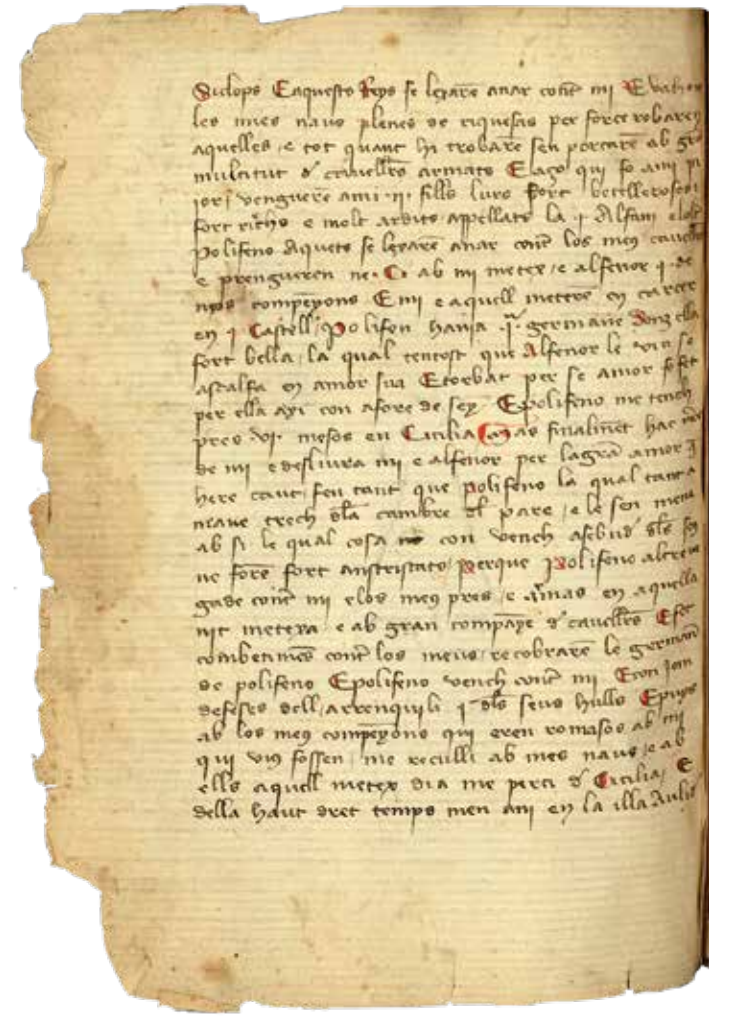 Siclops E aquests Reys se lexaren anar contra mi E vahen
les mies naus plenes de riquesas per force robaren
aquelles e tot quant hi trobaren sen portaren ab gran
multitut de cavellers armats E laço qui fo ami pi
ior venguere ami ·ii· fills lurs fort betellerosos
fort richs e molt ardits appellats la ·i· Alfani e lolt
Polifeno Aquets se lexaren anar contra los meus cavellers
e prengueren ne ·C· ab mi metex e alfenor ·i· de
nos companyons E mi e aquell meteren en carcer
en ·i· Castell Polifen havia ·iª· germane Donzella
fort bella la qual tentost que Alfenor le viu se
ascalfa en amor sua E torbat per se amor fo fet
per ella axi con afore de sey E polifeno me tench
pres ·vi· mesos en Cicilia mas finalment hac
de mi e desliura mi e alfenor per la gran amor
here caut fen tant que polifeno la qual tanta
maue trech dla cambre dl pare e le sen mena
ab si le qual cosa con vench asebude dls sey
ne foren fort anstristats perque Polifeno altre
gade contra mi e los meus pres e armas en aquella
nit metexa e ab gran companye de cavellers E fet
combetimens contra los meus recobraren le germana
de polifeno E polifeno vench contra mi E con jem
defeses dell arrenquili ·i· dls seus hulls E puys
ab los meus companyons qui eren romasos ab mi
qui vius fossen me reculli ab mes naus e ab
ells aquell metex dia me parti de Cicilia E
della haut dret temps men ani en la illa Aulid